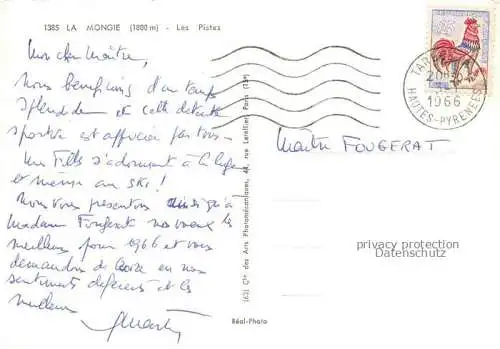 1385 LA MONGIE (1800 m) - Les Pistes
Mon cher Maître,
Nous bénéficions d'un temps
splendide et cette détente
sportive est appréciée par tous -
Les s'adonnent à la luge
et même au ski !
Nous vous présentons ainsi qu'à
Madame Fougerat nos voeux les
meilleurs pour 1966 et vous
demandons de croire en nos
sentiments déférents et les
meilleurs
Maître FOUGERAT
TARBES
1966
HAUTES-PYRENEES
Cie des Arts Photomécaniques, 44, rue Letellier, Paris (15e)
Réal-Photo
privacy protection
Datenschutz